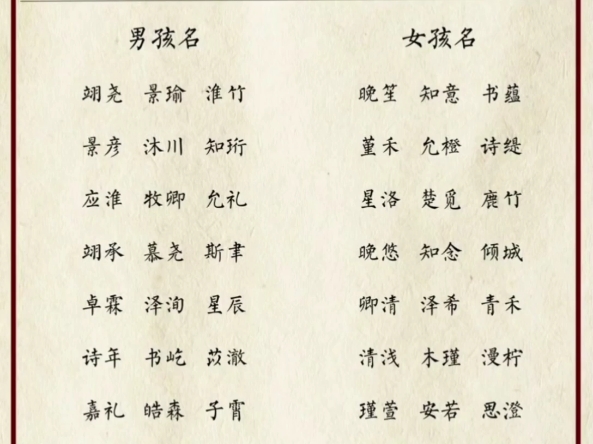 男孩名 女孩名
翊尧 景瑜 淮竹 晚笙 知意 书蕴
景彦 沐川 知珩 堇禾 允橙 诗缇
应淮 牧卿 允礼 星洛 楚觅 鹿竹
翊承 慕尧 斯聿 晚悠 知念 倾城
卓霖 泽洵 星辰 卿清 泽希 青禾
诗年 书屹 苡澈 清浅 木瑾 漫柠
嘉礼 皓森 子霄 瑾萱 安若 思澄